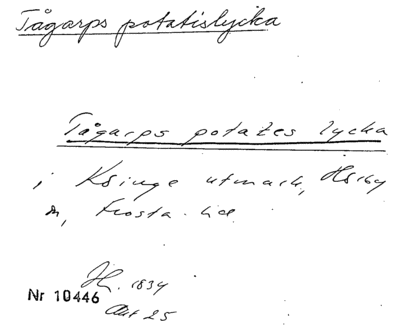 Tågarps potatislycka
Tågarps potates lycka
i Ksinge utmark, Hsby
sn, Frosta hd
Jh. 1834
Akt 25
Nr 10446